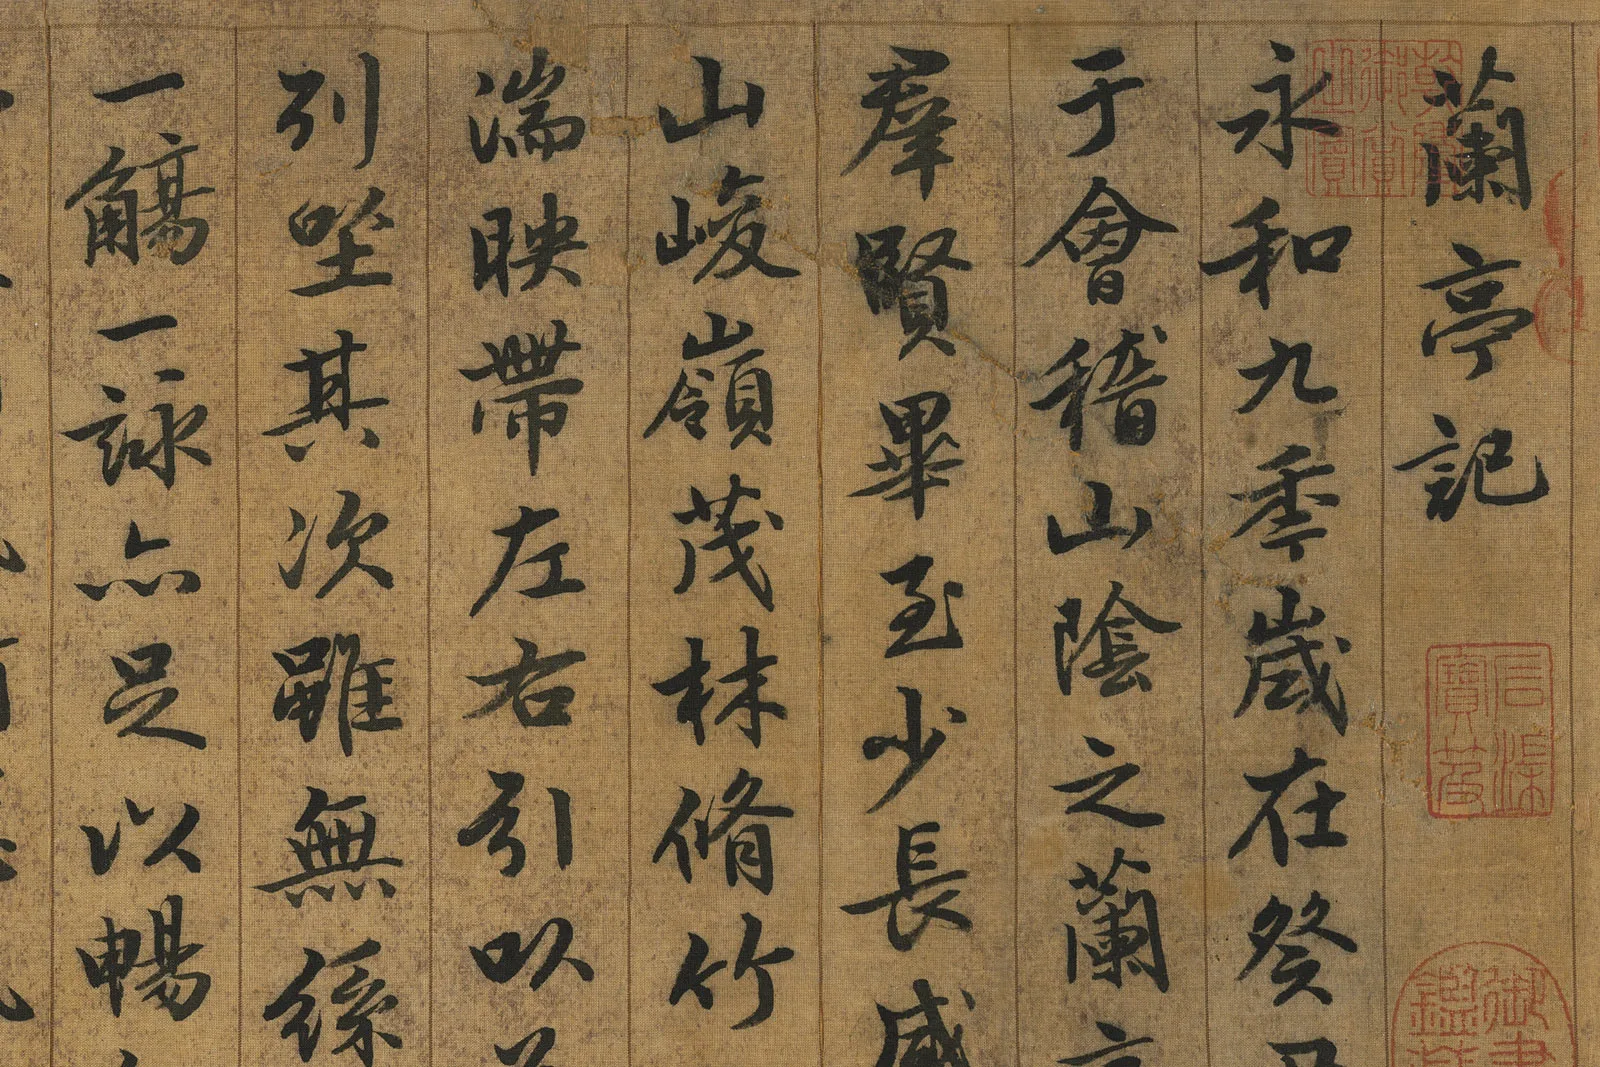 蘭亭記
永和九年歲在癸
于會稽山陰之蘭亭
羣賢畢至少長咸
山峻嶺茂林脩竹
湍映帶左右引以
列坐其次雖無絲
一觴一詠亦足以暢
石渠寶笈
御書
鑑藏